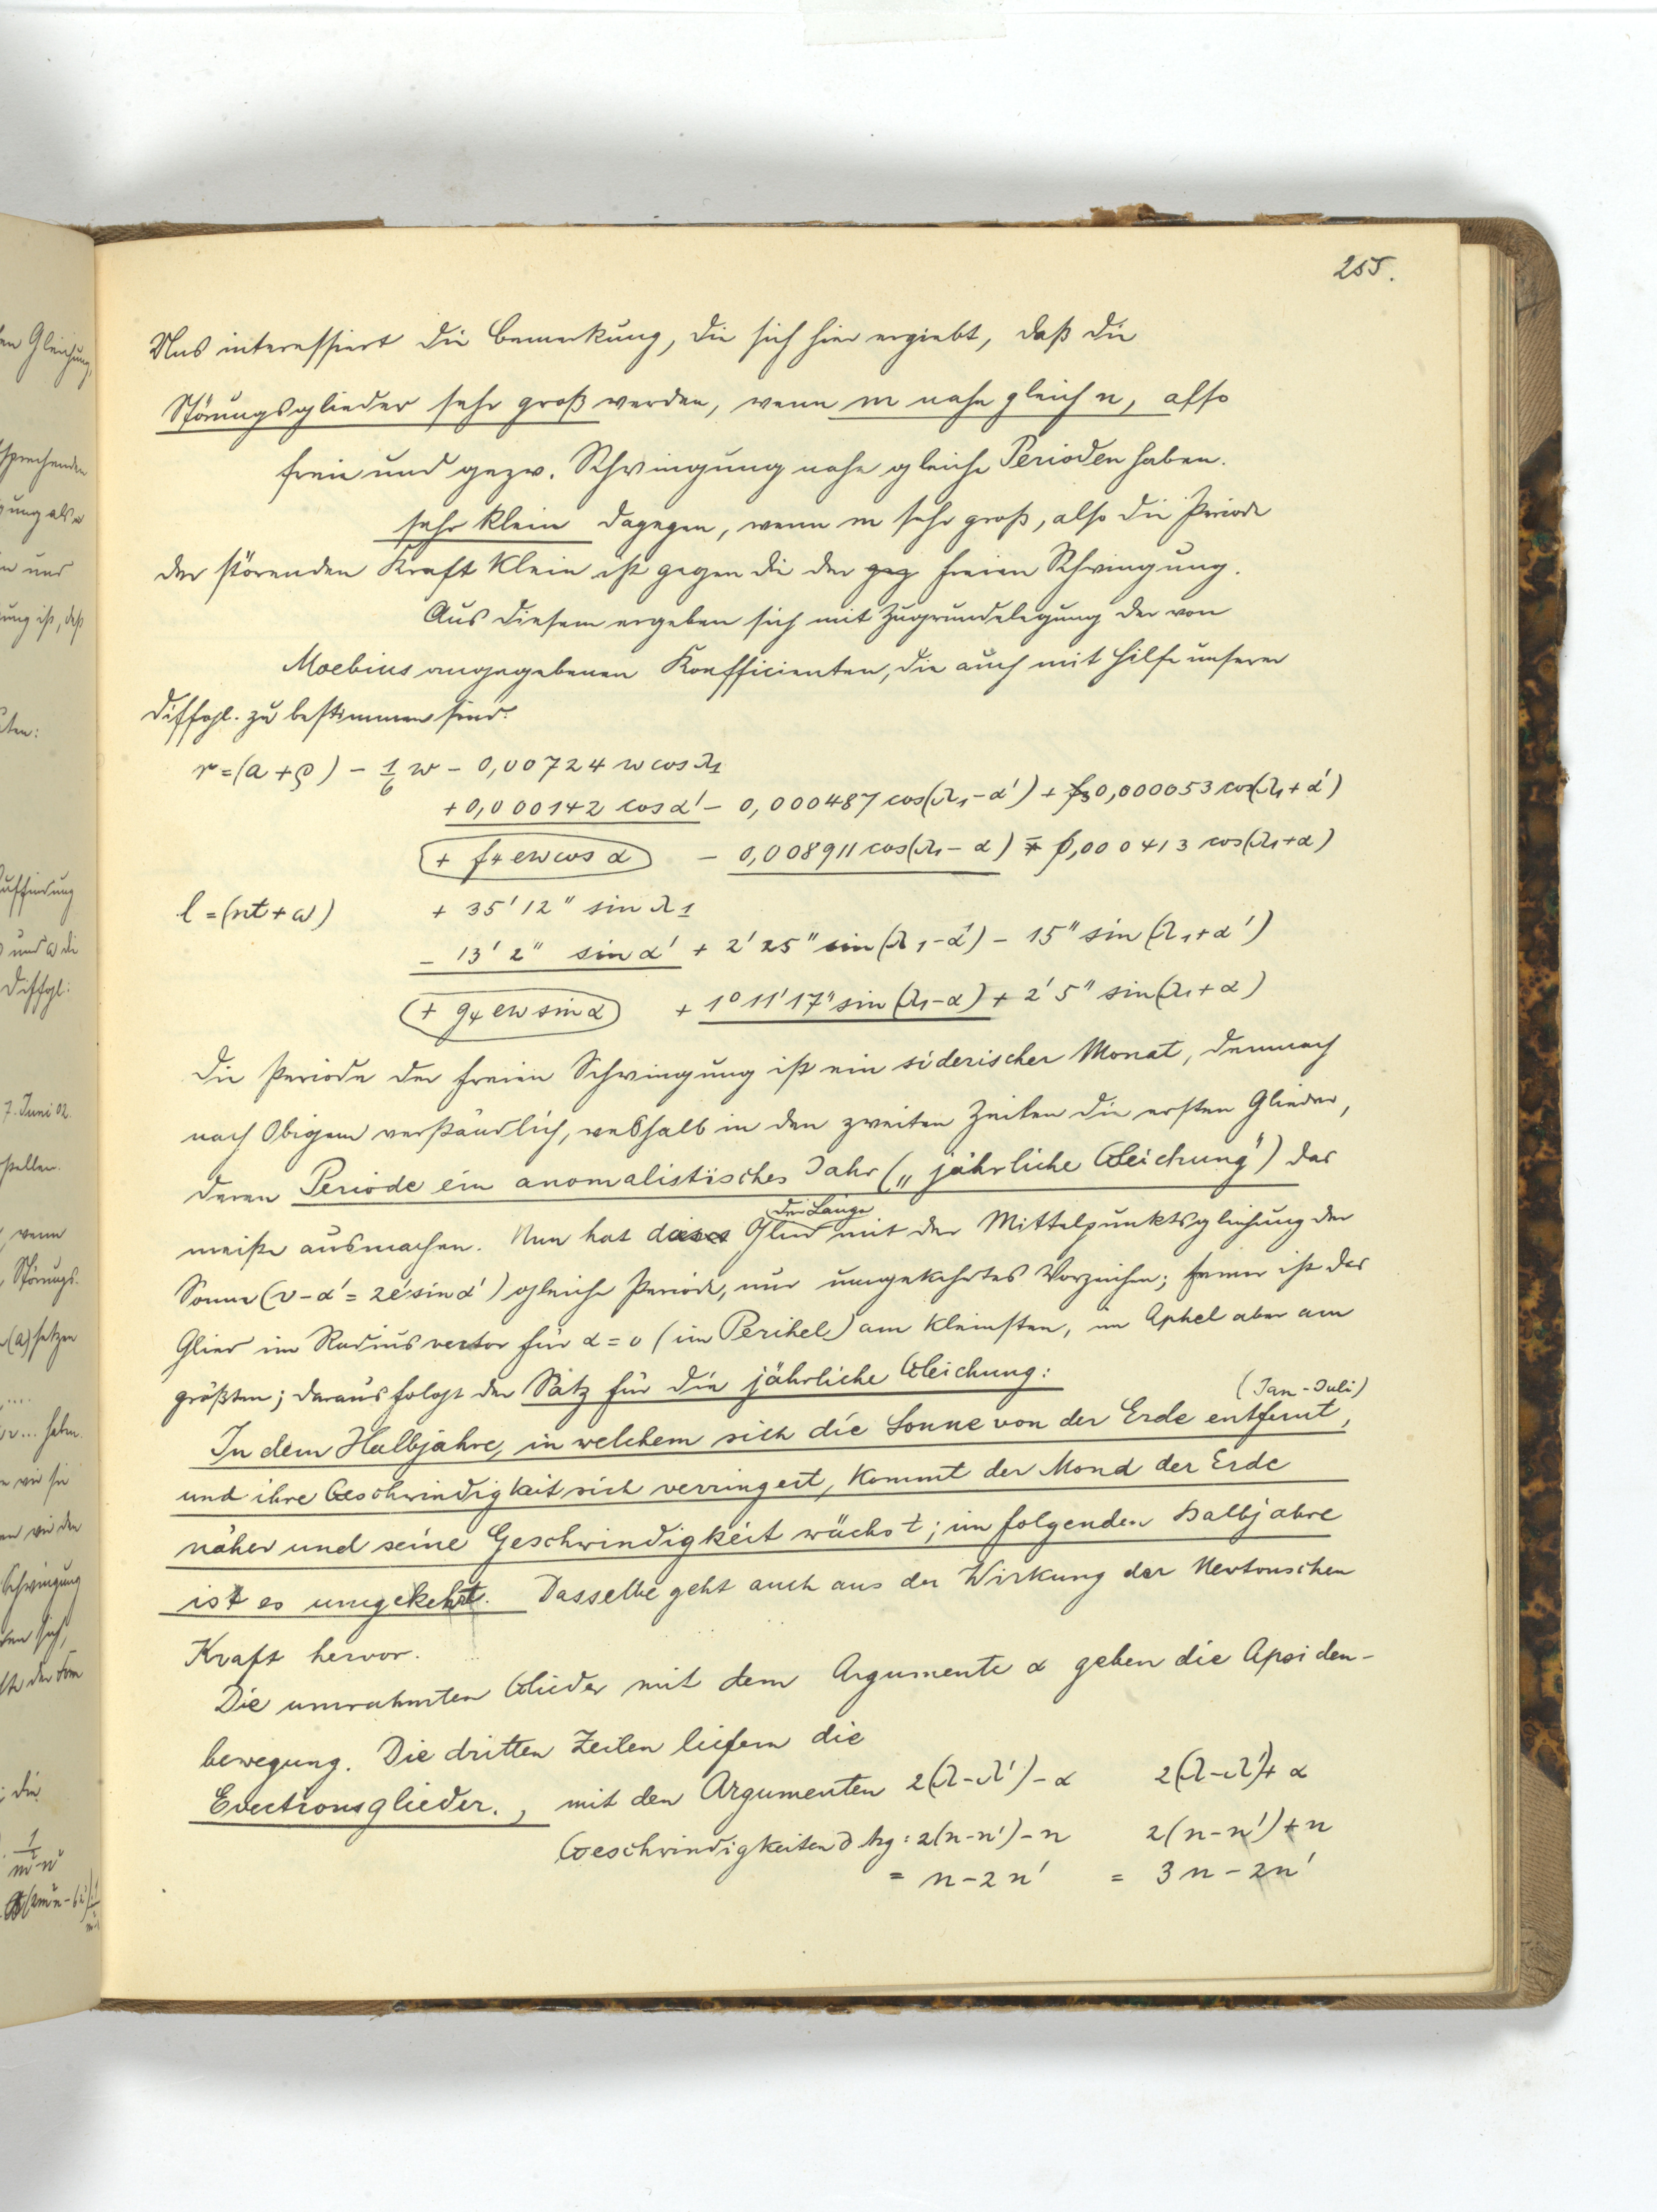 255.
Uns interessiert die Bemerkung, die sich hier ergiebt, daß die
Störungsglieder sehr groß werden, wenn m nahe gleich n, also
freie und gezw. Schwingung nahe gleiche Perioden haben.
sehr klein dagegen, wenn m sehr groß, also die Periode
der störenden Kraft klein ist gegen die der geg freien Schwingung.
Aus diesem ergeben sich mit Zugrundelegung der von
Moebius angegebenen Koefficienten, die auch mit Hilfe unserer
Diffgl. zu bestimmen sind:
r = (a + ρ) - 1/6 w - 0,00724 w cos λ1
+ 0,000142 cos α' - 0,000487 cos(λ1 - α') + f3 0,000053 cos(λ1 + α')
+ f4 ew cos α - 0,008911 cos(λ1 - α) ∓ 0,000413 cos(λ1 + α)
l = (nt + ω) + 35' 12" sin λ1
- 13' 2" sin α' + 2' 25" sin(λ1 - α') - 15" sin(λ1 + α')
+ g4 ew sin α + 1° 11' 17" sin(λ1 - α) + 2' 5" sin(λ1 + α)
Die Periode der freien Schwingung ist ein siderischer Monat, demnach
nach Obigem verständlich, weshalb in den zweiten Zeilen die ersten Glieder,
deren Periode ein anomalistisches Jahr („jährliche Gleichung") das
meiste ausmachen. Nun hat dieses Glied der Länge mit der Mittelpunktsgleichung der
Sonne (v - α' = 2e' sin α') gleiche Periode, nur umgekehrtes Vorzeichen; ferner ist das
Glied im Radius vector für α = 0 (im Perihel) am kleinsten, im Aphel aber am
größten; daraus folgt der Satz für die jährliche Gleichung:
(Jan - Juli)
In dem Halbjahre, in welchem sich die Sonne von der Erde entfernt,
und ihre Geschwindigkeit sich verringert, kommt der Mond der Erde
näher und seine Geschwindigkeit wächst; im folgenden Halbjahre
ist es umgekehrt. Dasselbe geht auch aus der Wirkung der Newtonschen
Kraft hervor.
Die umrahmten Glieder mit dem Argumente α geben die Apsiden-
bewegung. Die dritten Zeilen liefern die
Evectionsglieder, mit den Argumenten 2(λ - λ') - α 2(λ - λ') + α
Geschwindigkeiten d Arg: 2(n - n') - n 2(n - n') + n
= n - 2n' = 3n - 2n'